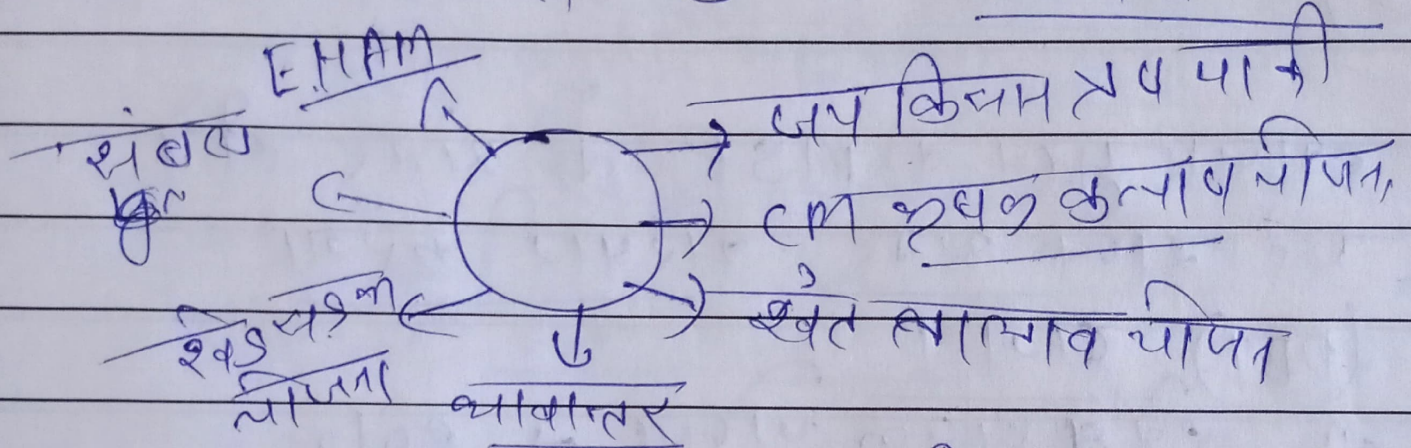 E.HAM
जय किसान
संबल
CM कृषक कल्याण योजना
खेत तालाब योजना
खेत सड़क
योजना
भावान्तर